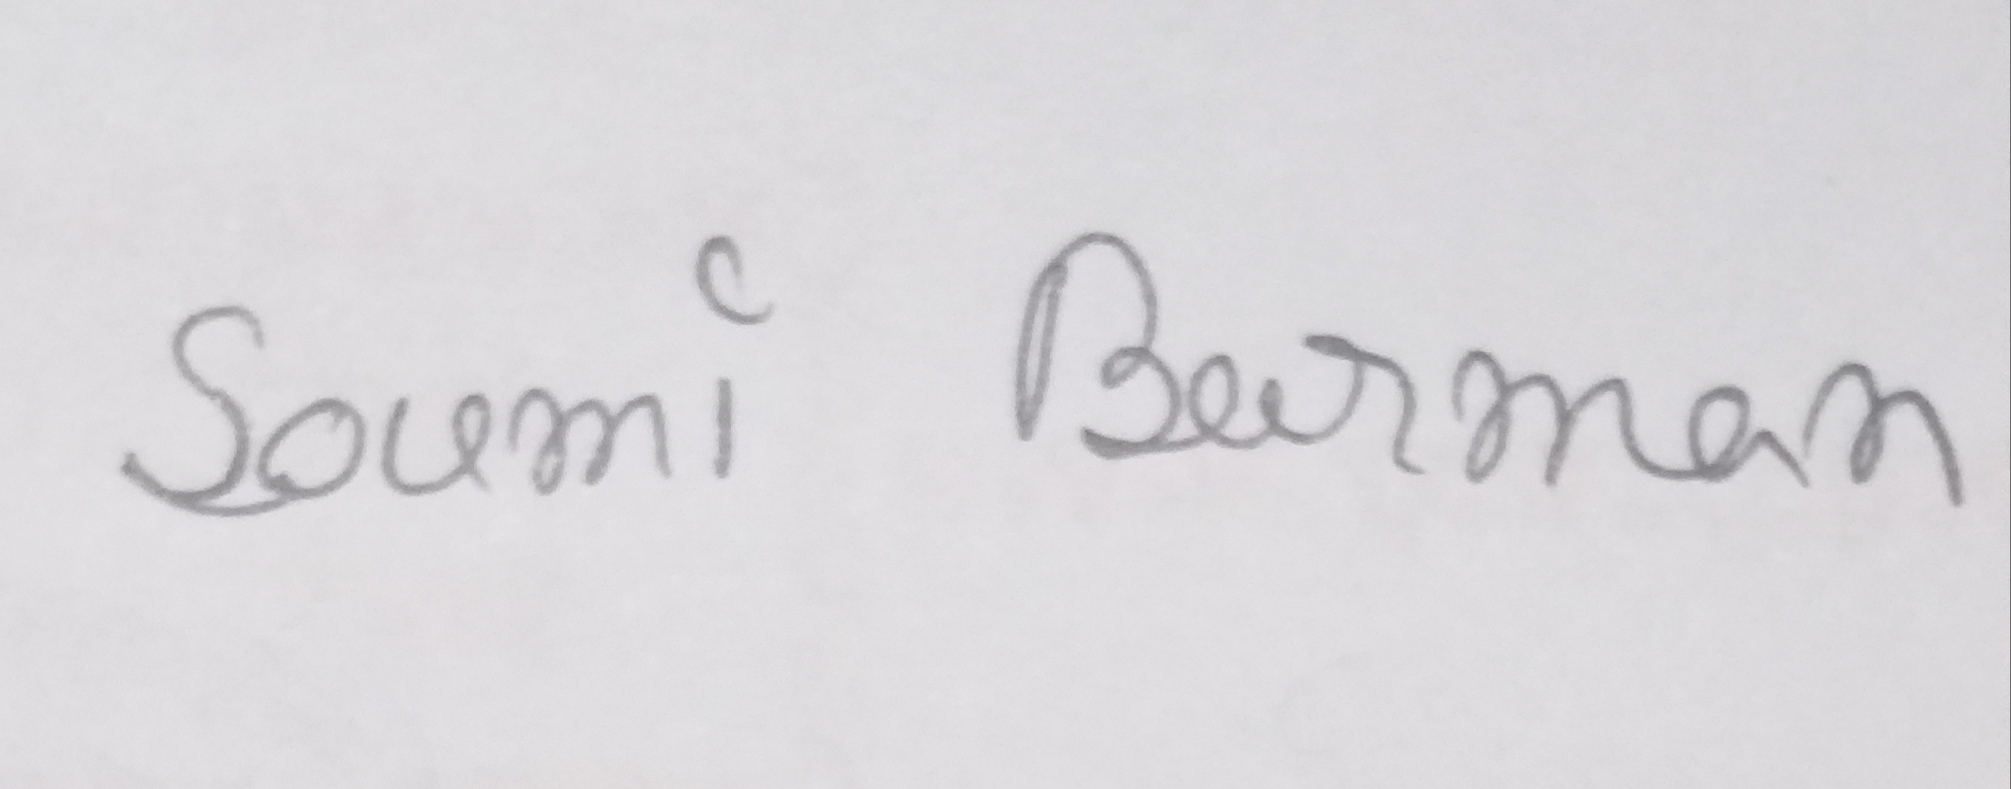 Soumi Barman